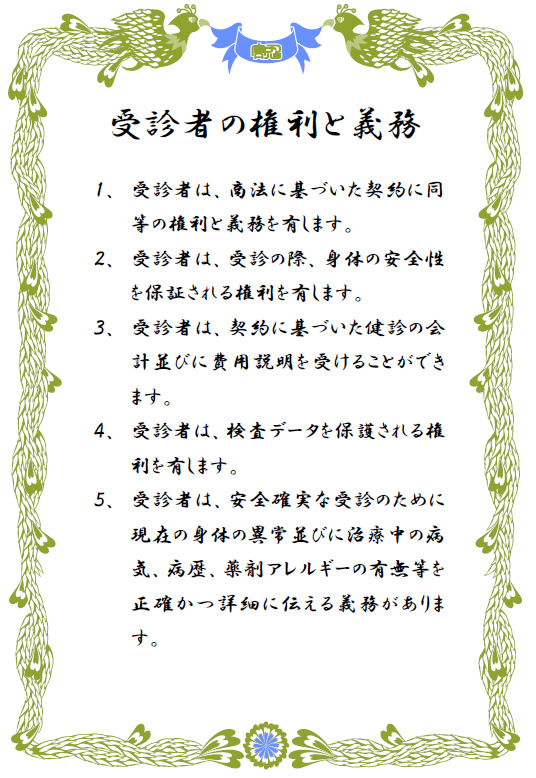 受診者の権利と義務
1、 受診者は、商法に基づいた契約に同
等の権利と義務を有します。
2、 受診者は、受診の際、身体の安全性
を保証される権利を有します。
3、 受診者は、契約に基づいた健診の会
計並びに費用説明を受けることができ
ます。
4、 受診者は、検査データを保護される権
利を有します。
5、 受診者は、安全確実な受診のために
現在の身体の異常並びに治療中の病
気、病歴、薬剤アレルギーの有無等を
正確かつ詳細に伝える義務がありま
す。